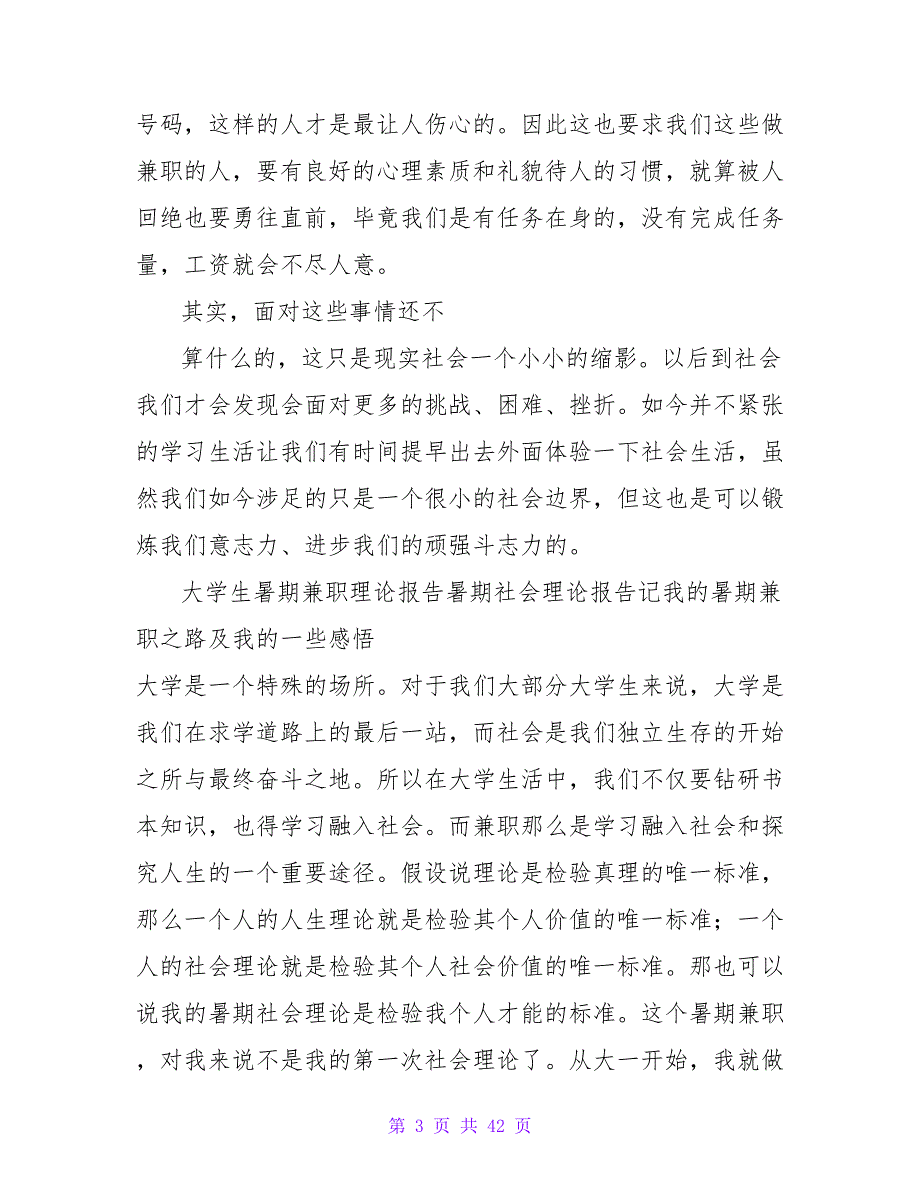 号码，这样的人才是最让人伤心的。因此这也要求我们这些做
兼职的人，要有良好的心理素质和礼貌待人的习惯，就算被人
回绝也要勇往直前，毕竟我们是有任务在身的，没有完成任务
量，工资就会不尽人意。
其实，面对这些事情还不
算什么的，这只是现实社会一个小小的缩影。以后到社会
我们才会发现会面对更多的挑战、困难、挫折。如今并不紧张
的学习生活让我们有时间提早出去外面体验一下社会生活，虽
然我们如今涉足的只是一个很小的社会边界，但这也是可以锻
炼我们意志力、进步我们的顽强斗志力的。
大学生暑期兼职理论报告暑期社会理论报告记我的暑期兼
职之路及我的一些感悟
大学是一个特殊的场所。对于我们大部分大学生来说，大学是
我们在求学道路上的最后一站，而社会是我们独立生存的开始
之所与最终奋斗之地。所以在大学生活中，我们不仅要钻研书
本知识，也得学习融入社会。而兼职那么是学习融入社会和探
究人生的一个重要途径。假设说理论是检验真理的唯一标准，
那么一个人的人生理论就是检验其个人价值的唯一标准；一个
人的社会理论就是检验其个人社会价值的唯一标准。那也可以
说我的暑期社会理论是检验我个人才能的标准。这个暑期兼职
，对我来说不是我的第一次社会理论了。从大一开始，我就做
第 3 页 共 42 页